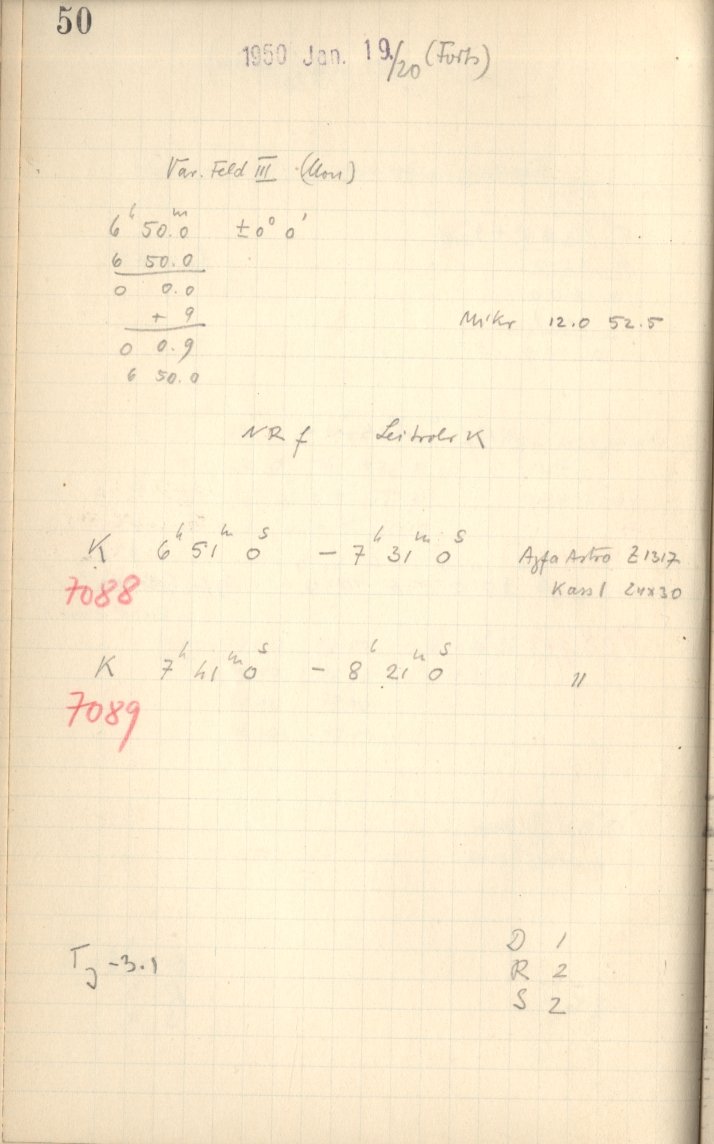 50
1950 Jan. 19./20 (Forts)
Var. Feld III (Mon)
6h 50.0m ±0° 0'
6 50.0
0 0.0
+ 9
Mikr 12.0 52.5
0 0.9
6 50.0
NR f Leitrohr K
K 6h 51m 0s – 7h 31m 0s Agfa Astro Z1317
7088 Kass 1 24x30
K 7h 41m 0s – 8h 21m 0s "
7089
D 1
TJ -3.1 R 2
S 2